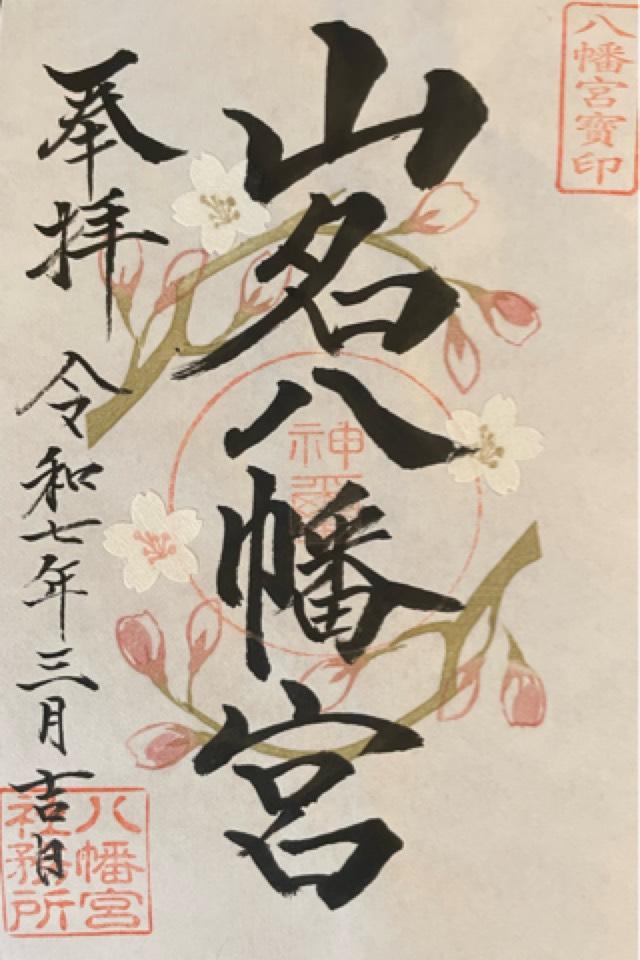 八幡宮寳印
山名八幡宮
神璽
奉拝
令和七年三月吉日
八幡宮
社務所